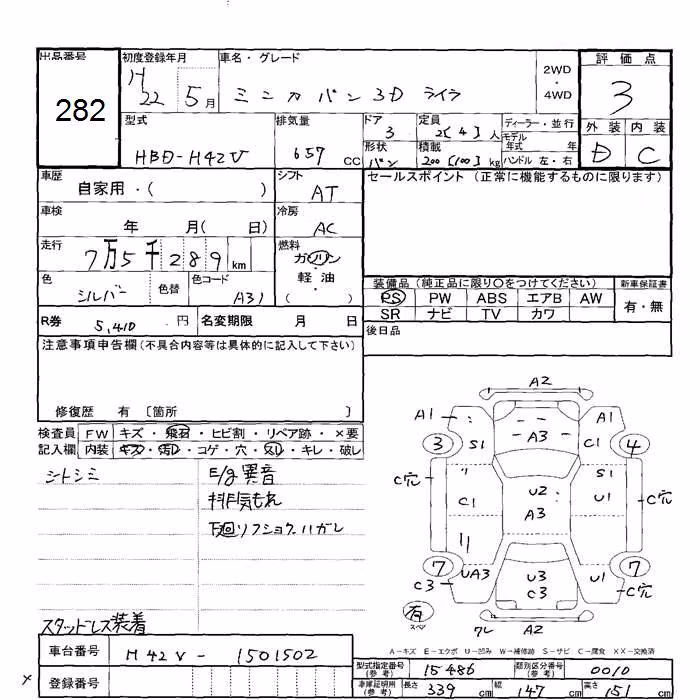 出品番号
282
初度登録年月
H22 5月
車名・グレード
ミニカバン3D ライラ
2WD・4WD
評価点
3
型式
HBD-H42V
排気量
657 CC
ドア
3
形状
バン
定員
2[4]人
積載
200[100]kg
ディーラー・並行
モデル年式 年
ハンドル 左・右
外装 内装
D C
車歴
自家用・( )
シフト
AT
セールスポイント(正常に機能するものに限ります)
車検
年 月( 日)
冷房
AC
走行
7万5千289km
燃料
ガソリン・軽油・( )
色
シルバー
色替
色コード
A31
装備品(純正品に限り○をつけてください)
新車保証書
PS PW ABS エアB AW
有・無
SR ナビ TV カワ
R券
5,410円
名変期限 月 日
後日品
注意事項申告欄(不具合内容等は具体的に記入して下さい)
修復歴 有〔箇所 〕
検査員記入欄
FW キズ・飛石・ヒビ割・リペア跡・×要
内装 キズ・汚レ・コゲ・穴・スリ・キレ・破レ
シートシミ
E/g異音
排気もれ
下廻リフショク.ハガレ
スタッドレス装着
A2
A1
A1
3
S1
A3
C1
4
C穴
S1
C1
U2
U1
C穴
A3
7
UA3
U3
U1
7
C3
C3
C穴
有
スペア
ワレ
A2
A-キズ E-エクボ U-凹み W-補修跡 S-サビ C-腐食 XX-交換済
車台番号
H42V-1501502
登録番号
型式指定番号(参考)
15486
類別区分番号(参考)
0010
車庫証明用(参考)
長さ 339cm 幅 147cm 高さ 151cm